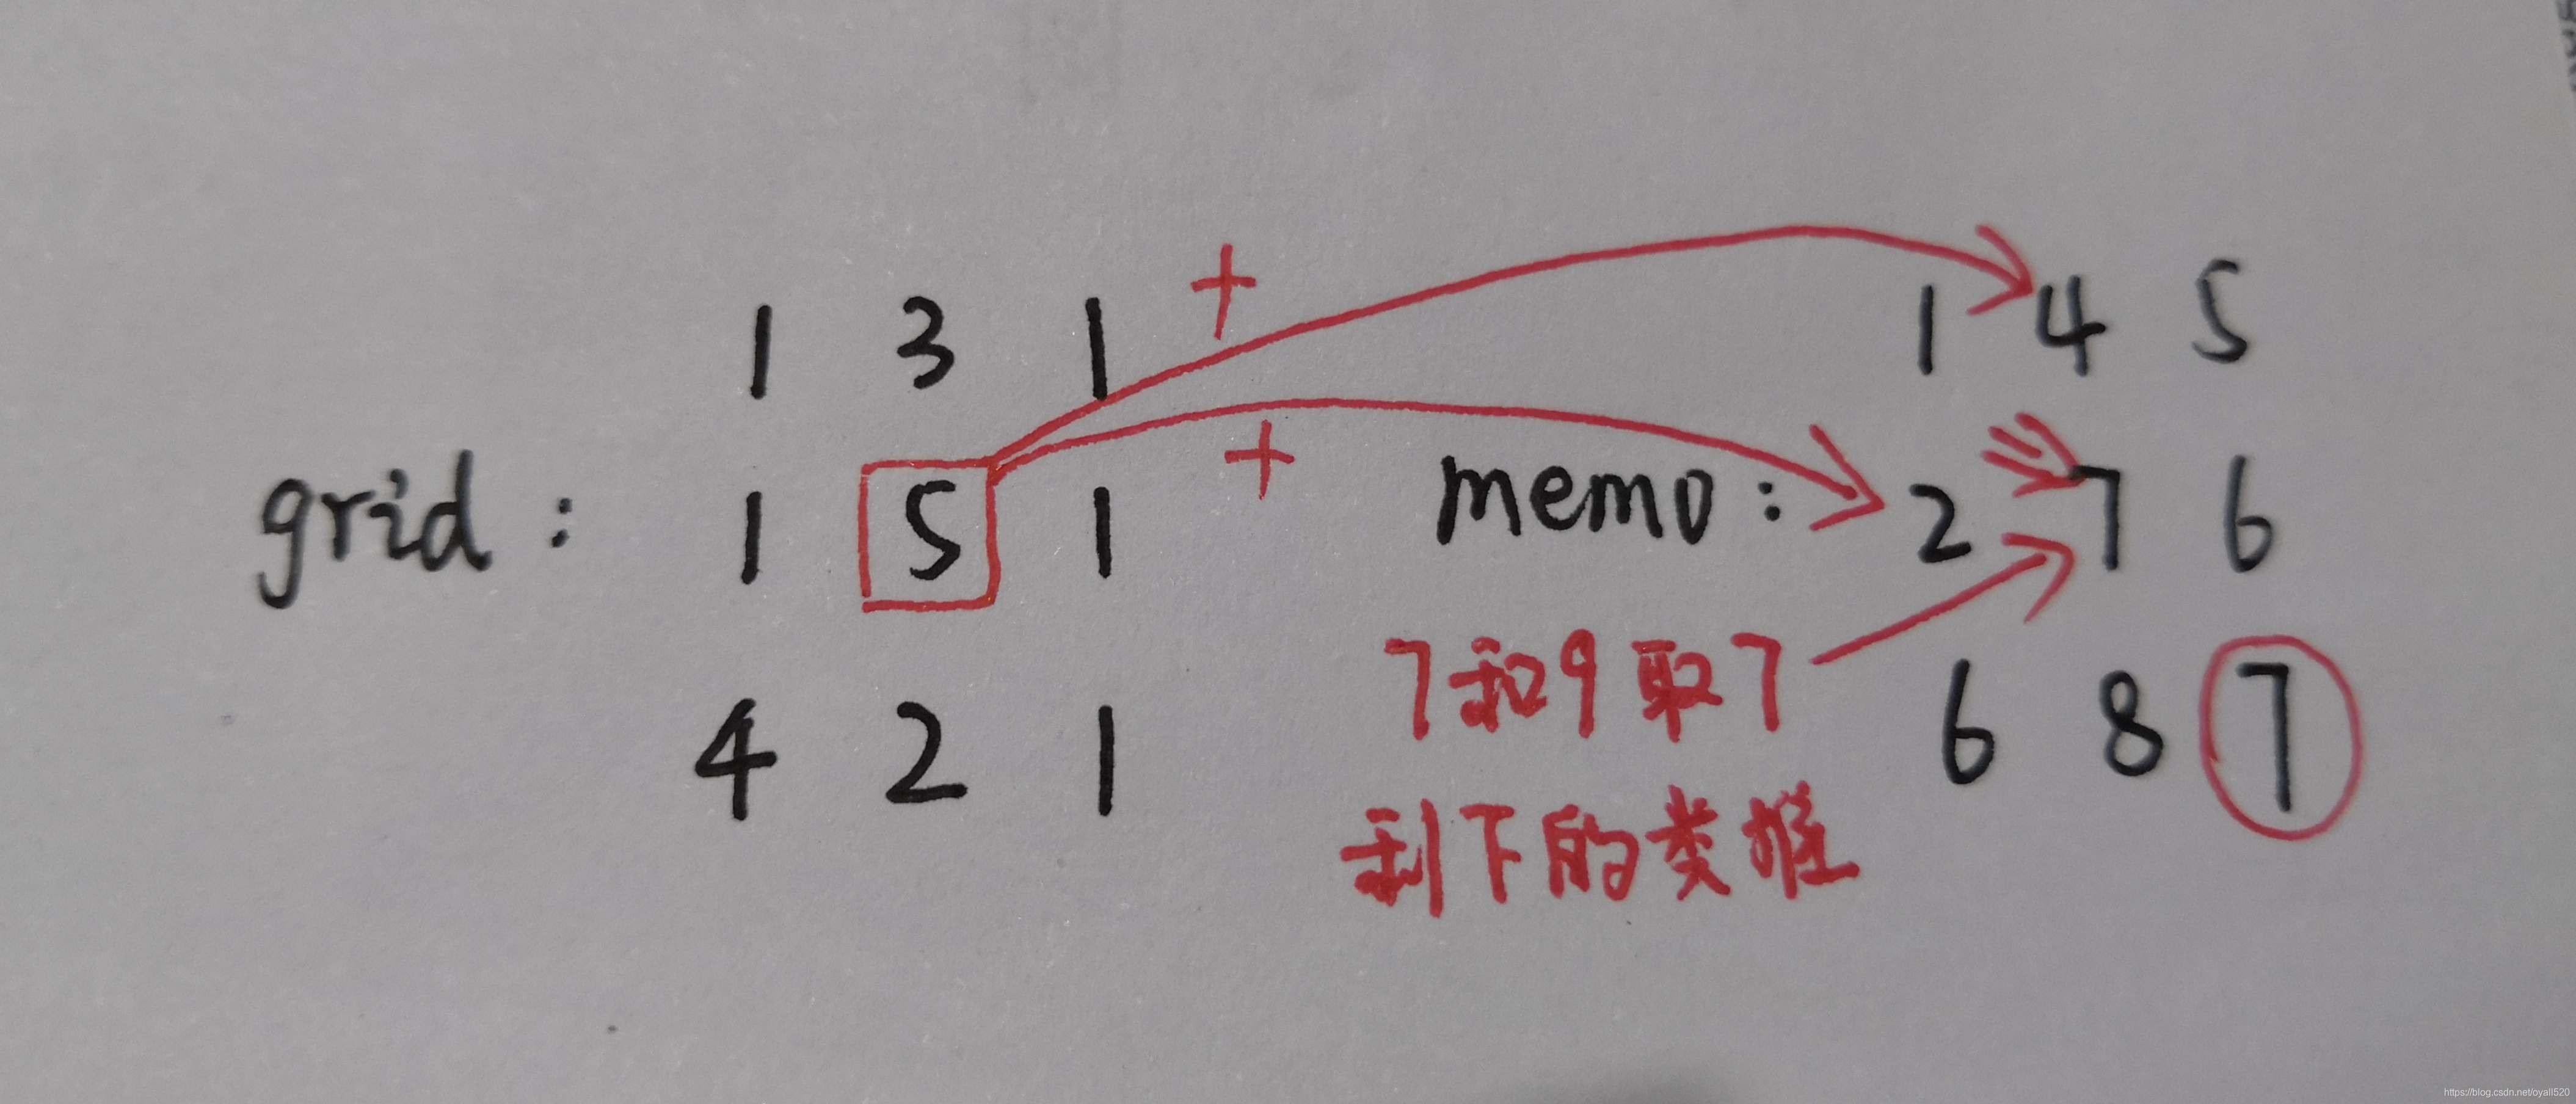 1 3 1 + 1 4 5
grid: 1 5 1 + memo: 2 7 6
7和9取7
4 2 1 6 8 7
剩下的类推
https://blog.csdn.net/oyall520